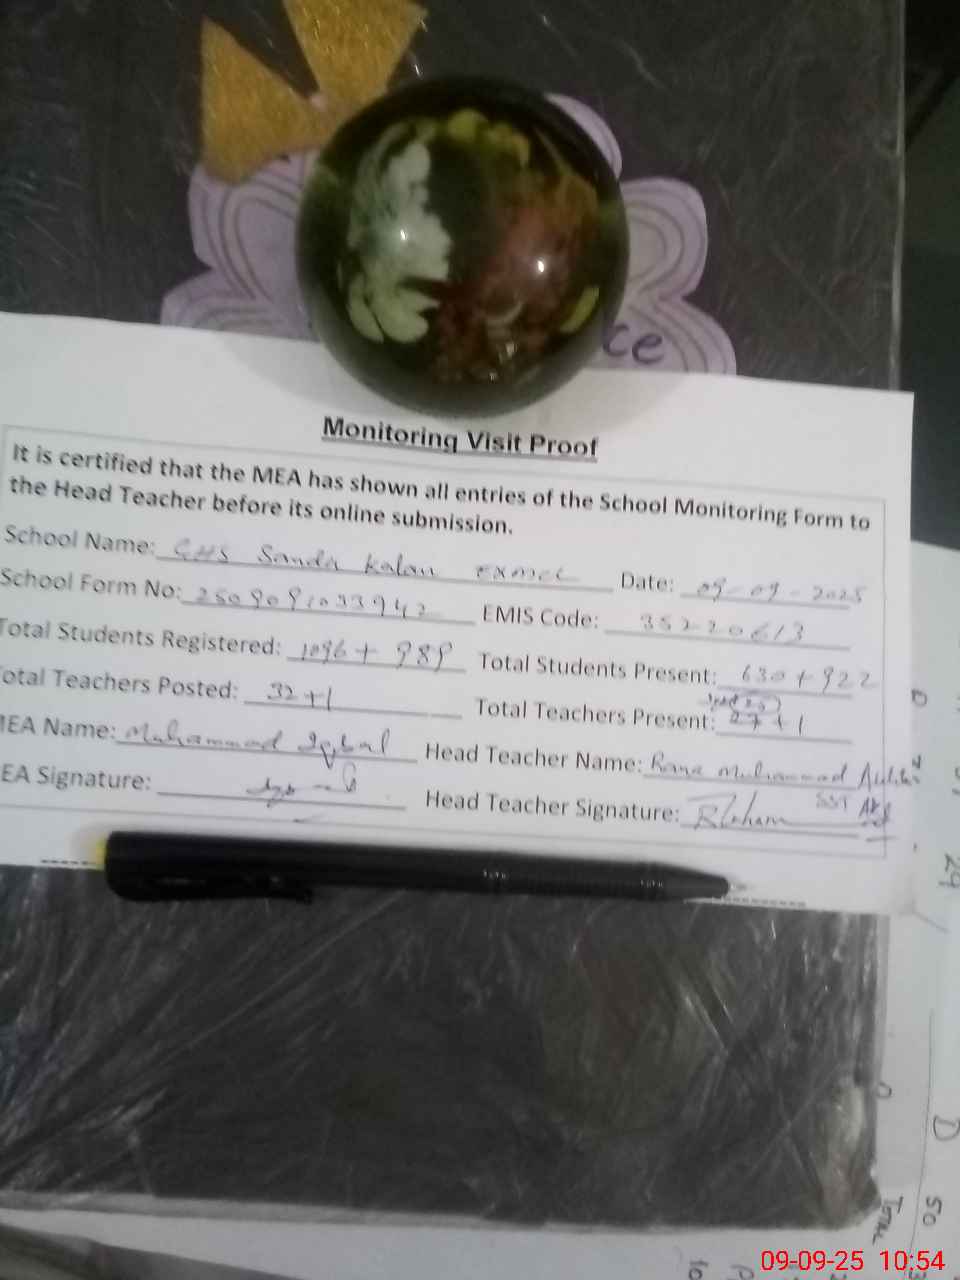 ce
Monitoring Visit Proof
It is certified that the MEA has shown all entries of the School Monitoring Form to
the Head Teacher before its online submission.
School Name: GHS Sanda Kalan Exmcl Date: 09-09-2025
School Form No: 2509091033942 EMIS Code: 35220613
Total Students Registered: 1096 + 989 Total Students Present: 630 + 922
otal Teachers Posted: 32+1 Total Teachers Present: 27+1
MEA Name: Muhammad Iqbal Head Teacher Name: Rana Muhammad
EA Signature: Head Teacher Signature:
SST
24
D
50
TOTAL
10
09-09-25 10:54